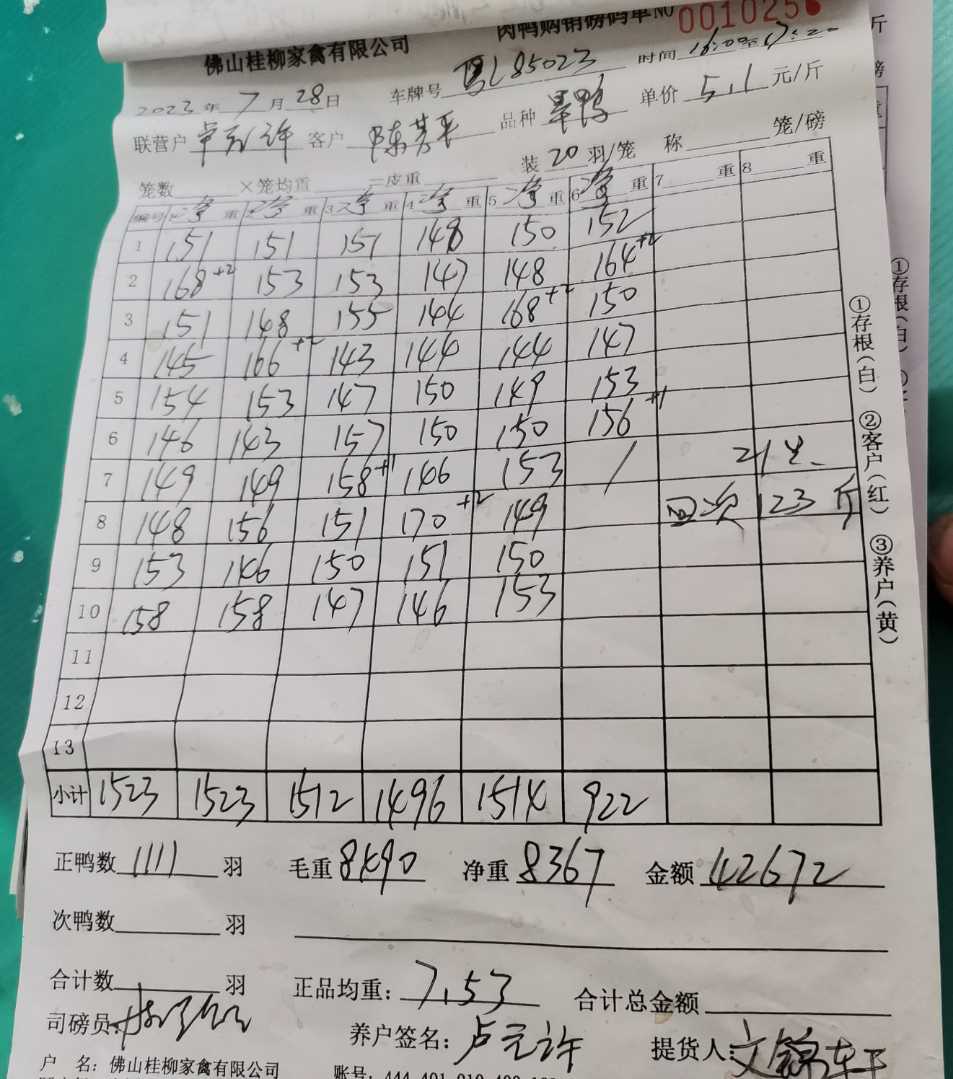 肉鸭购销磅码单NO 001025
佛山桂柳家禽有限公司
2023年7月28日 车牌号 粤L85023 时间
联营户 卢元许 客户 陈芳平 品种 旱鸭 单价 5.1 元/斤
笼数 ×笼均重 =皮重 装 20 羽/笼 称 笼/磅
编号 1净重 2净重 3净重 4净重 5净重 6净重 7重 8重
1 151 151 151 148 150 152
2 168+2 153 153 147 148 164+2
3 151 148 155 144 168+2 150
4 145 166+2 143 144 144 147
5 154 153 147 150 149 153
6 146 143 157 150 150 156+1
7 149 149 158+1 146 153 /
8 148 156 151 170+2 149 四次 123斤
9 153 146 150 151 150
10 158 158 147 146 153
11
12
13
小计 1523 1523 1512 1496 1514 922
正鸭数 1111 羽 毛重 8490 净重 8367 金额 42672
次鸭数 羽
合计数 羽 正品均重: 7.53 合计总金额
司磅员: 养户签名: 卢元许 提货人:
户 名: 佛山桂柳家禽有限公司
账号:
①存根(白) ②客户(红) ③养户(黄)